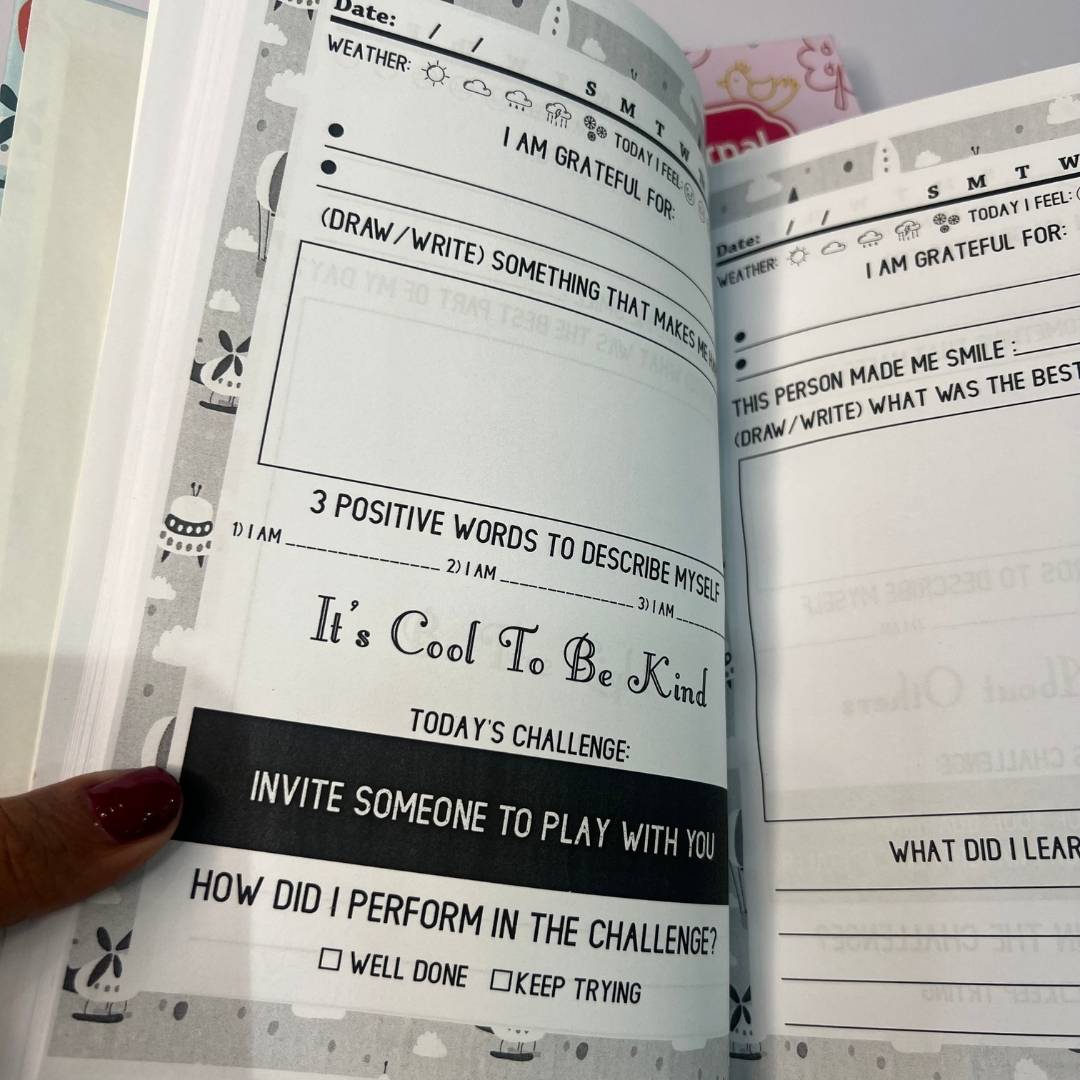 Date: / /
S M T W
WEATHER: TODAY I FEEL:
I AM GRATEFUL FOR:
(DRAW/WRITE) SOMETHING THAT MAKES ME
3 POSITIVE WORDS TO DESCRIBE MYSELF
1) I AM 2) I AM 3) I AM
It's Cool To Be Kind
TODAY'S CHALLENGE:
INVITE SOMEONE TO PLAY WITH YOU
HOW DID I PERFORM IN THE CHALLENGE?
WELL DONE KEEP TRYING
Date: / / S M T W
WEATHER: TODAY I FEEL:
I AM GRATEFUL FOR:
THIS PERSON MADE ME SMILE :
(DRAW/WRITE) WHAT WAS THE BEST
WHAT DID I LEAR